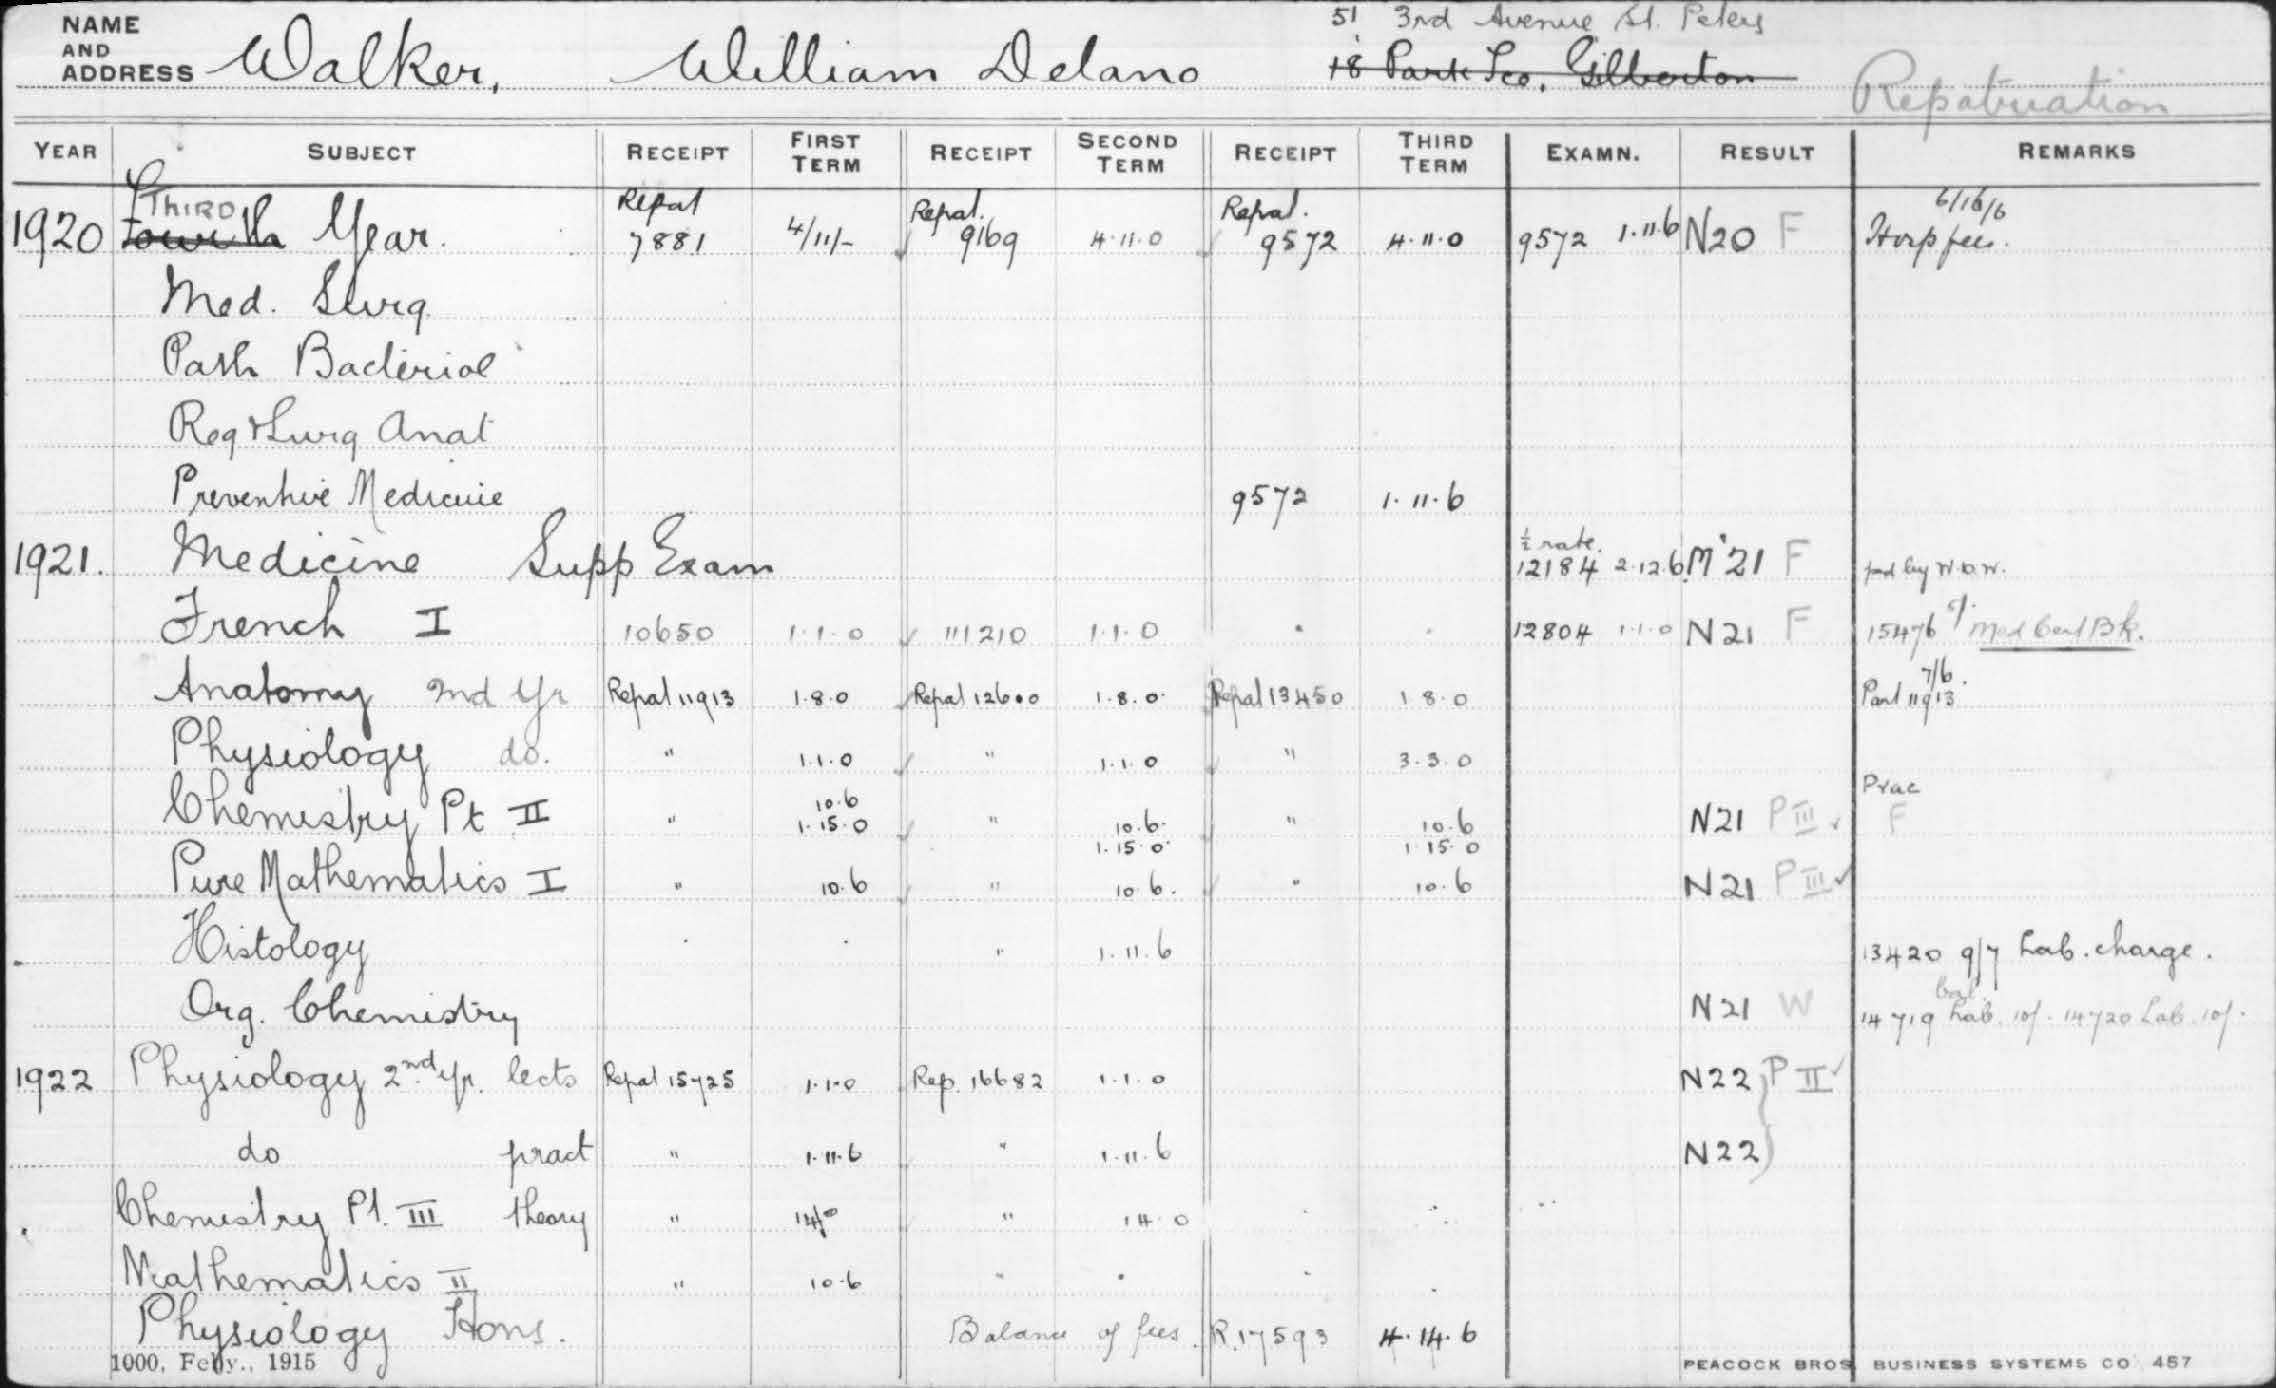 51 3rd Avenue St. Peters
NAME AND ADDRESS Walker, William Delano 18 Park Tce, Gilberton Repatriation
YEAR SUBJECT RECEIPT FIRST TERM RECEIPT SECOND TERM RECEIPT THIRD TERM EXAMN. RESULT REMARKS
THIRD Repat Repat. Repat. 6/16/6
1920 Fourth Year. 7881 4/11/- 9169 4.11.0 9572 4.11.0 9572 1.11.6 N20 F Hosp fees.
Med. Surg.
Path Bacteriol
Reg & Surg Anat
Preventive Medicine 9572 1.11.6
½ rate.
1921. Medicine Supp Exam 12184 2.12.6 M'21 F pd by W.D.W.
French I 10650 1.1.0 111210 1.1.0 12804 1.1.0 N21 F 15476 Med Cert Bk.
7/6.
Anatomy 2nd Yr Repat 11913 1.8.0 Repat 12600 1.8.0 Repat 13450 1.8.0 Part 11913
Physiology do. " 1.1.0 " 1.1.0 " 3.3.0
10.6 Prac
Chemistry Pt II " 1.15.0 " 10.6 " 10.6 N21 P III F
1.15.0 1.15.0
Pure Mathematics I " 10.6 " 10.6. " 10.6 N21 P III
Histology " 1.11.6 13420 9/7 Lab. charge.
bal
Org. Chemistry N21 W 14719 Lab. 10/- 14720 Lab. 10/-
1922 Physiology 2nd yr. lects Repat 15725 1.1.0 Rep. 16682 1.1.0 N22 P II
do pract " 1.11.6 " 1.11.6 N22
Chemistry Pt. III theory " 14/0 " 14.0
Mathematics II " 10.6
Physiology Hons. Balance of fees R.17593 4.14.6
1000, Feby., 1915 PEACOCK BROS BUSINESS SYSTEMS CO 457